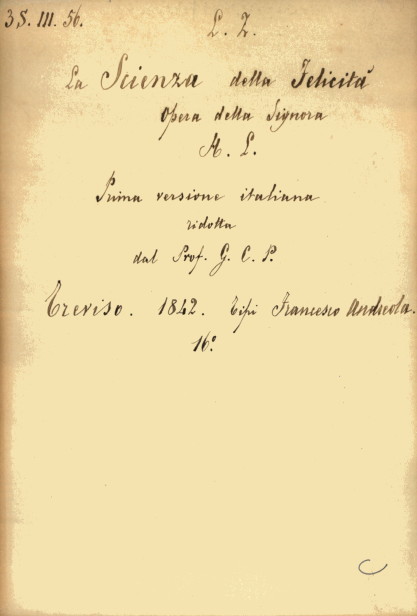 3 S. III. 56.
L. Z.
La Scienza della Felicità
Opera della Signora
A. L.
Prima versione italiana
ridotta
dal Prof. G. C. P.
Treviso. 1842. Tipi Francesco Andreola.
16.º